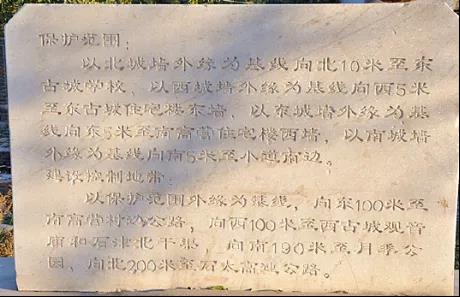 保护范围:
以北城墙外缘为基线向北10米至东
古城学校，以西城墙外缘为基线向西5米
至东古城住宅楼东墙，以东城墙外缘为基
线向东5米至南高营住宅楼西墙，以南城墙
外缘为基线向南5米至小道南边。
建设控制地带:
以保护范围外缘为基线，向东100米至
南高营村边公路，向西100米至西古城观音
庙和石津北干渠，向南190米至月季公
园，向北200米至石太高速公路。